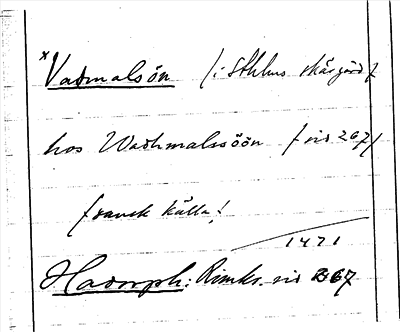 *Vadmalsön /i Sthlms skärgård/
hos Wadhmalssöön /sid 267/
/svensk källa!
1471
Hadorph: Rimkr. sid 267